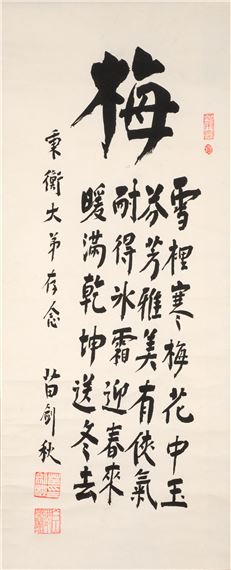 梅
雪裡寒梅花中玉
芬芳雅美有俠氣
耐得氷霜迎春來
暖滿乾坤送冬去
秉衡大弟存念
苗劍秋